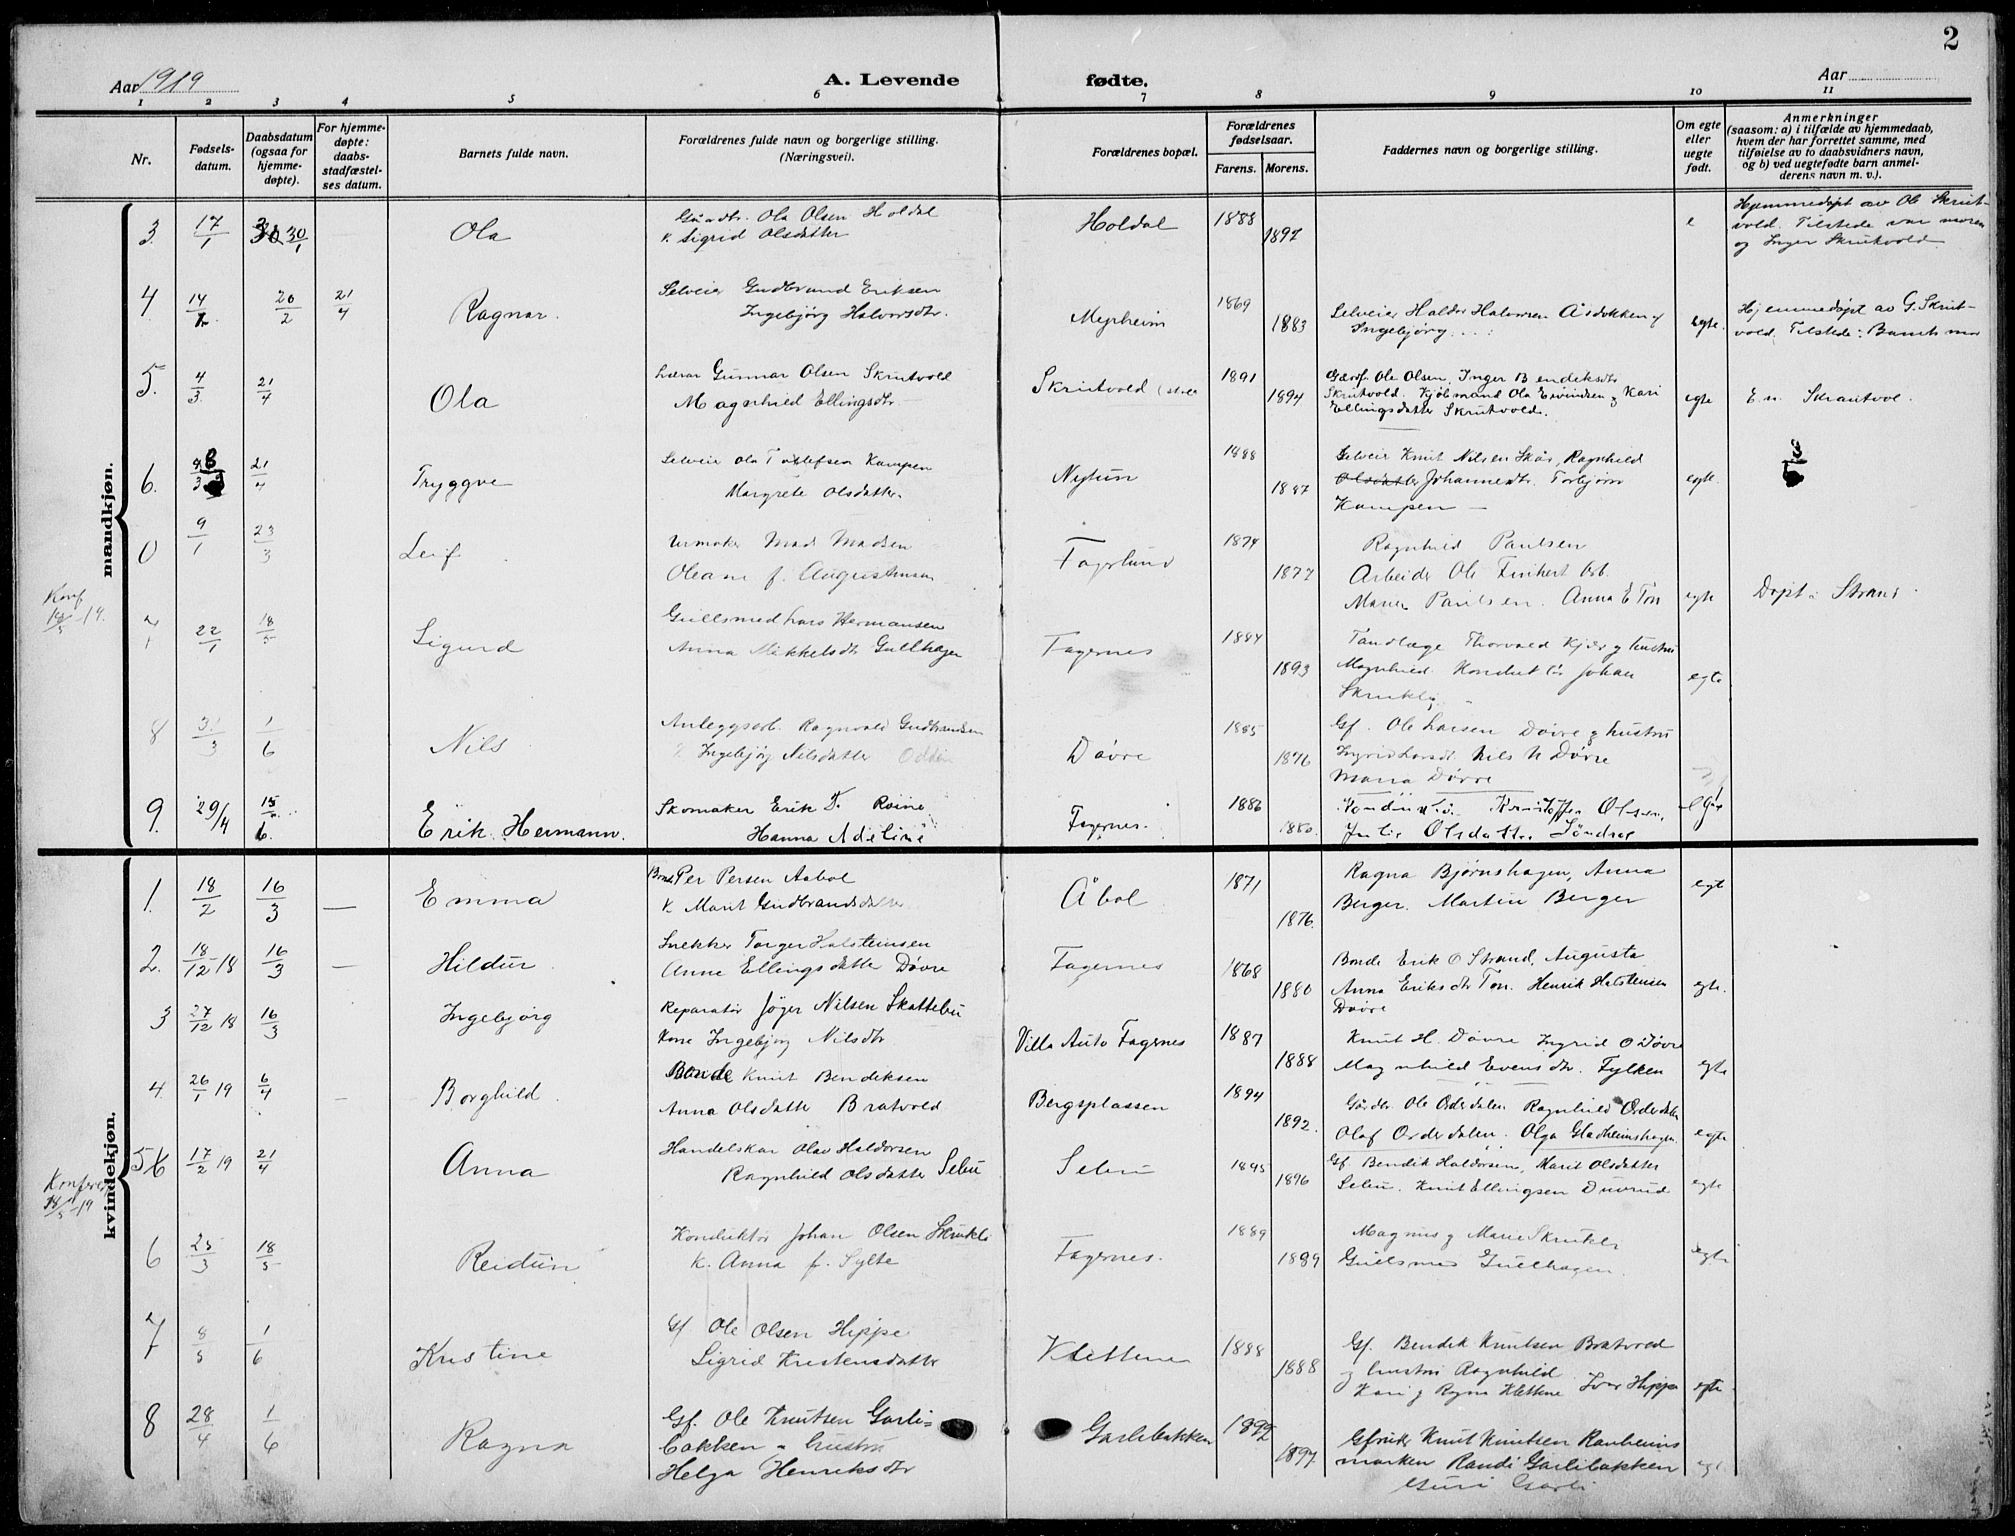 2
Aar 1919
A. Levende fødte.
Aar
1 2 3 4 5 6 7 8 9 10 11
Nr.
Fødsels-
datum.
Daabsdatum
(ogsaa for
hjemme-
døpte).
For hjemme-
døpte:
daabs-
stadfæstel-
ses datum.
Barnets fulde navn.
Forældrenes fulde navn og borgerlige stilling.
(Næringsvei).
Forældrenes bopæl.
Forældrenes
fødselsaar.
Farens. Morens.
Faddernes navn og borgerlige stilling.
Om egte
eller
uegte
født.
Anmerkninger
(saasom: a) i tilfælde av hjemmedaab,
hvem der har forrettet samme, med
tilføielse av to daabsvidners navn,
og b) ved uegtefødte barn anmel-
derens navn m. v.).
mandkjøn.
3. 17/1 30/1 Ola
Gaardbr. Ola Olsen Holdal
k. Sigrid Olsdatter
Holdal 1888 1897 e
Hjemmedøpt av Ol Skrut-
vold. Tilstede var moren
og Inger Skrutvold
4 14/2 20/2 21/4 Ragnar.
Selveier Gudbrand Eriksen
Ingebjørg Halvorsdtr.
1869 1883
Selveier Haldor Halvorsen
Ingebjørg
egte.
Hjemmedøpt av G. Skrut-
vold. Tilstede: Barnets mor
5. 4/3 21/4 Ola
Lærer Gunnar Olsen Skrutvold
Magnhild Ellingsdtr.
Skrutvold 1891 1894
Gaardbr. Ole Olsen, Inger Bendiksdtr
Skrutvold. Kjøbmand Ola Eivindsen og Kari
Ellingsdatter Skrutvold.
egte
E. n. Skrautvol.
6. 21/4 Tryggve
Selveier Ola Tollefsen Kampen
Margrete Olsdatter.
Nytun 1888 1887
Selveier Knut Nilsen Skår, Ragnhild
Olsdatter Johannesdtr. Torbjørn
Kampen
egte.
0 9/1 23/3 Leif
Urmaker Mads Madsen
Oleane f. Augustinsen
Fagerlund 1874 1877
Ragnhild Paulsen
Arbeider Ole
Marie Paulsen. Anna E Ton
egte
Døpt i Strand
Konf
18/5-19.
7 22/1 18/5 Sigurd
Gullsmed Lars Hermansen
Anna Mikkelsdtr Gullhagen
Fagernes 1884 1893
Tandlæge Thorvald Kjær og hustru
Magnhild. Konduktør Johan
Skrukli
egte
8 31/3 1/6 Nils
Anleggsarb. Ragnvald Gudbrandsen
Ingebjørg Nilsdatter
Døvre 1885 1876
Gf. Ole Larsen Døvre og hustru
Ingrid Larsdt. Nils N Døvre
Maria Døvre
9. 29/4 15/6. Erik Hermann.
Skomaker Erik T. Roine
Hanna Adeline
Fagernes. 1886 1880.
Konduktør Kristoffer Olsen,
Julie Olsdatter Søndrol
egte
kvindekjøn.
1. 18/2 16/3 — Emma
Bonde Per Persen Aabol
k. Marit Gudbrandsdatter
Åbol 1871 1876.
Ragna Bjørnshagen, Anna
Berger. Martin Berger
egte
2. 18/12 18 16/3 — Hildur
Snekker Torger Halsteinsen
Anne Ellingsdatter Døvre
Fagernes 1868 1880
Bonde Erik O Strand, Augusta
Anna Eriksdtr Ton. Henrik Halsteinsen
Døvre
egte.
3 27/12 18 16/3 Ingebjørg
Reparatør Jøger Nilsen Skattebu
Kone Ingebjørg Nilsdtr
Villa Auto Fagernes 1887 1888
Knut H. Døvre Ingrid O Døvre
Magnhild Evensdtr. Fylken
egte
4. 26/1 19 6/4 - Borghild
Bonde Knut Bendiksen
Anna Olsdatter Bratvold
Bergsplassen 1894 1892.
Gårdbr. Ole Orderdalen Ragnhild Orderdalen
Olaf Orderdalen. Olga Gladheimshagen
egte
5 17/2 19 21/4 Anna
Handelskar Olav Haldorsen
Ragnhild Olsdatter Sebu
Sebu 1895 1896
Gf Bendik Haldorsen, Marit Olsdatter
Sebu. Knut Ellingsen Duvrud
egte
18/5-19
6 25/3 18/5 Reidun
Konduktør Johan Olsen Skrukli
k. Anna f. Sylte
Fagernes. 1889 1889
Magnus og Marie Skrukli
Gullsmed Gullhagen
egte
7 8/5 1/6 Kristine
Gf Ole Olsen Hippe
Sigrid Kristensdatter
Klettene 1888 1888
Gf. Bendik Knutsen Bratvold
og hustru Ragnhild
Kari og Ragna Klettene Ivar Hippe
egte
8 28/4 1/6 Ragna
Gf. Ole Knutsen Garli=
bakken og hustru
Helga Henriksdtr
Garlibakken 1892 1897
Gfbruker Knut Knutsen Ranheims
marken Randi Garlibakken
Guri Garli
egt